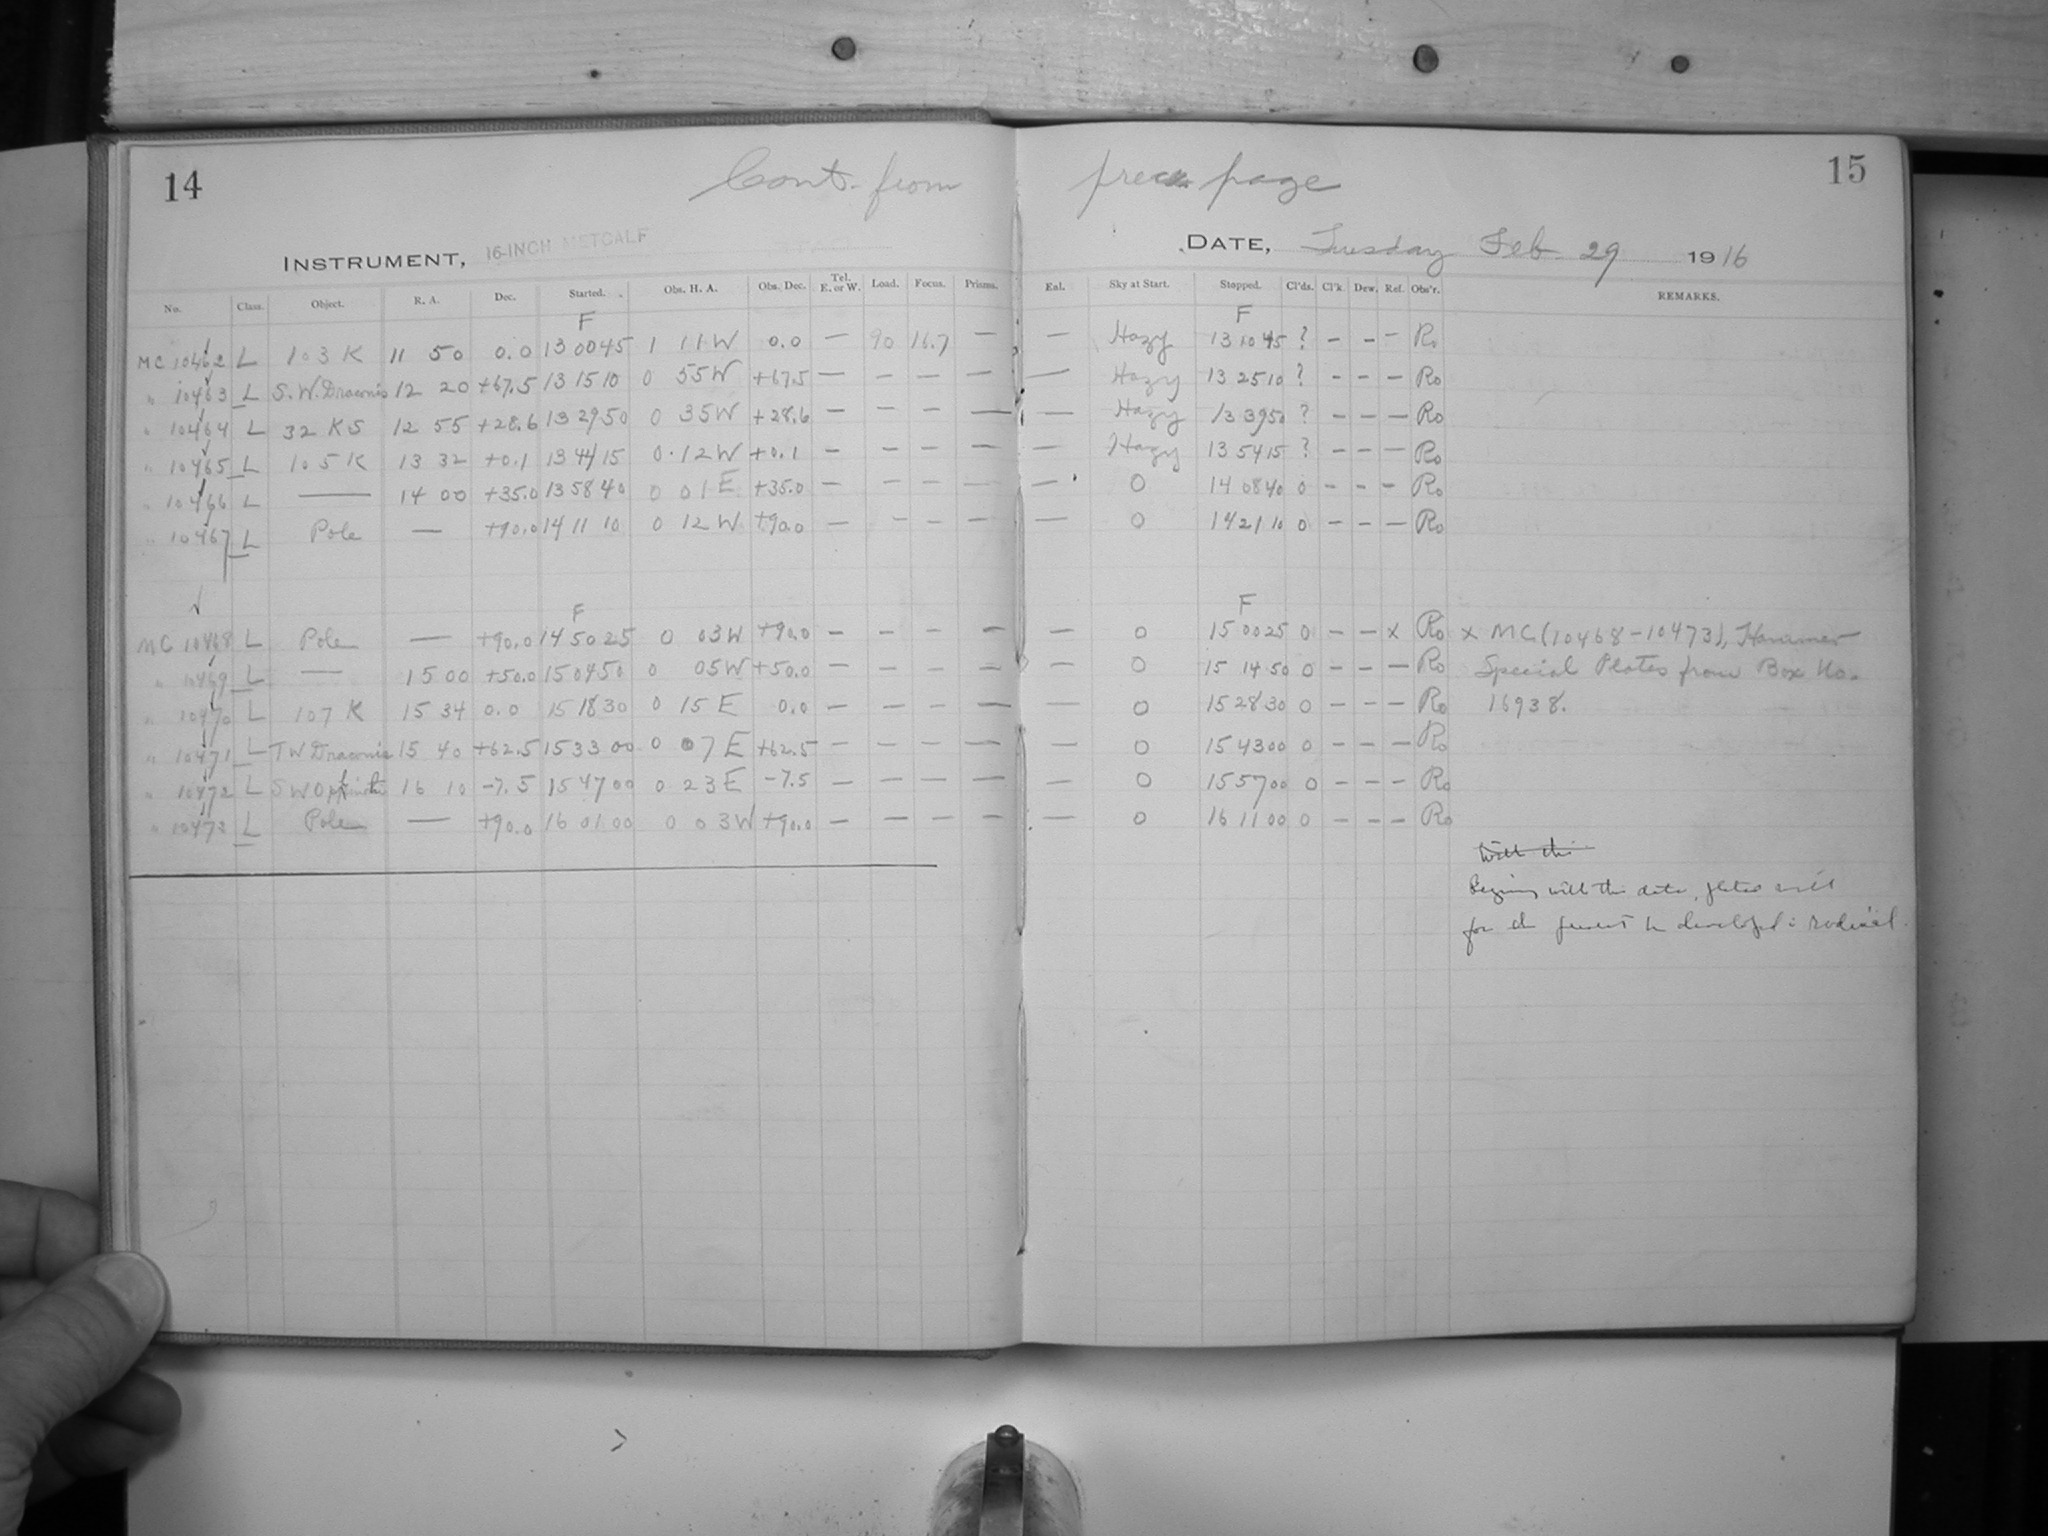 14 Cont. from prec. page 15
INSTRUMENT, 16-INCH METCALF DATE, Tuesday Feb. 29 1916
No. Class. Object. R. A. Dec. Started. Obs. H. A. Obs. Dec. Tel. E. or W. Load. Focus. Prisms. Enl. Sky at Start. Stopped. Cl'ds. Cl'k. Dew. Ref. Obs'r. REMARKS.
F F
MC 10462 L 103 K 11 50 0.0 13 00 45 1 11 W 0.0 — 90 16.7 — — Hazy 13 10 45 ? - - - Ro
" 10463 L S.W. Draconis 12 20 +67.5 13 15 10 0 55 W +67.5 — — — — — Hazy 13 25 10 ? - - - Ro
" 10464 L 32 KS 12 55 +28.6 13 29 50 0 35 W +28.6 — — — — — Hazy 13 39 50 ? - - - Ro
" 10465 L 105 K 13 32 +0.1 13 44 15 0 12 W +0.1 — — — — — Hazy 13 54 15 ? - - - Ro
" 10466 L — 14 00 +35.0 13 58 40 0 01 E +35.0 — — — — — 0 14 08 40 0 - - - Ro
" 10467 L Pole — +90.0 14 11 10 0 12 W +90.0 — — — — — 0 14 21 10 0 - - - Ro
F F
MC 10468 L Pole — +90.0 14 50 25 0 03 W +90.0 — — — — — 0 15 00 25 0 - - x Ro x MC (10468-10473), Hammer
" 10469 L — 15 00 +50.0 15 04 50 0 05 W +50.0 — — — — — 0 15 14 50 0 - - - Ro Special Plates from Box No.
" 10470 L 107 K 15 34 0.0 15 18 30 0 15 E 0.0 — — — — — 0 15 28 30 0 - - - Ro 16938.
" 10471 L TW Draconis 15 40 +62.5 15 33 00 0 07 E +62.5 — — — — — 0 15 43 00 0 - - - Ro
" 10472 L SW Ophiuchi 16 10 -7.5 15 47 00 0 23 E -7.5 — — — — — 0 15 57 00 0 - - - Ro
" 10473 L Pole — +90.0 16 01 00 0 03 W +90.0 — — — — — 0 16 11 00 0 - - - Ro
With this
Beginning with this date, plates will
for the present be developed in rodinal.